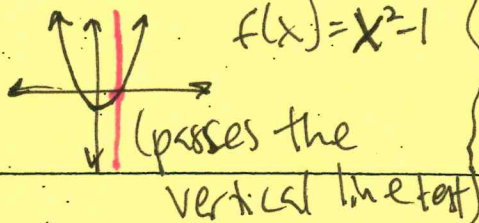 f(x)=x²-1
(passes the
vertical line test)